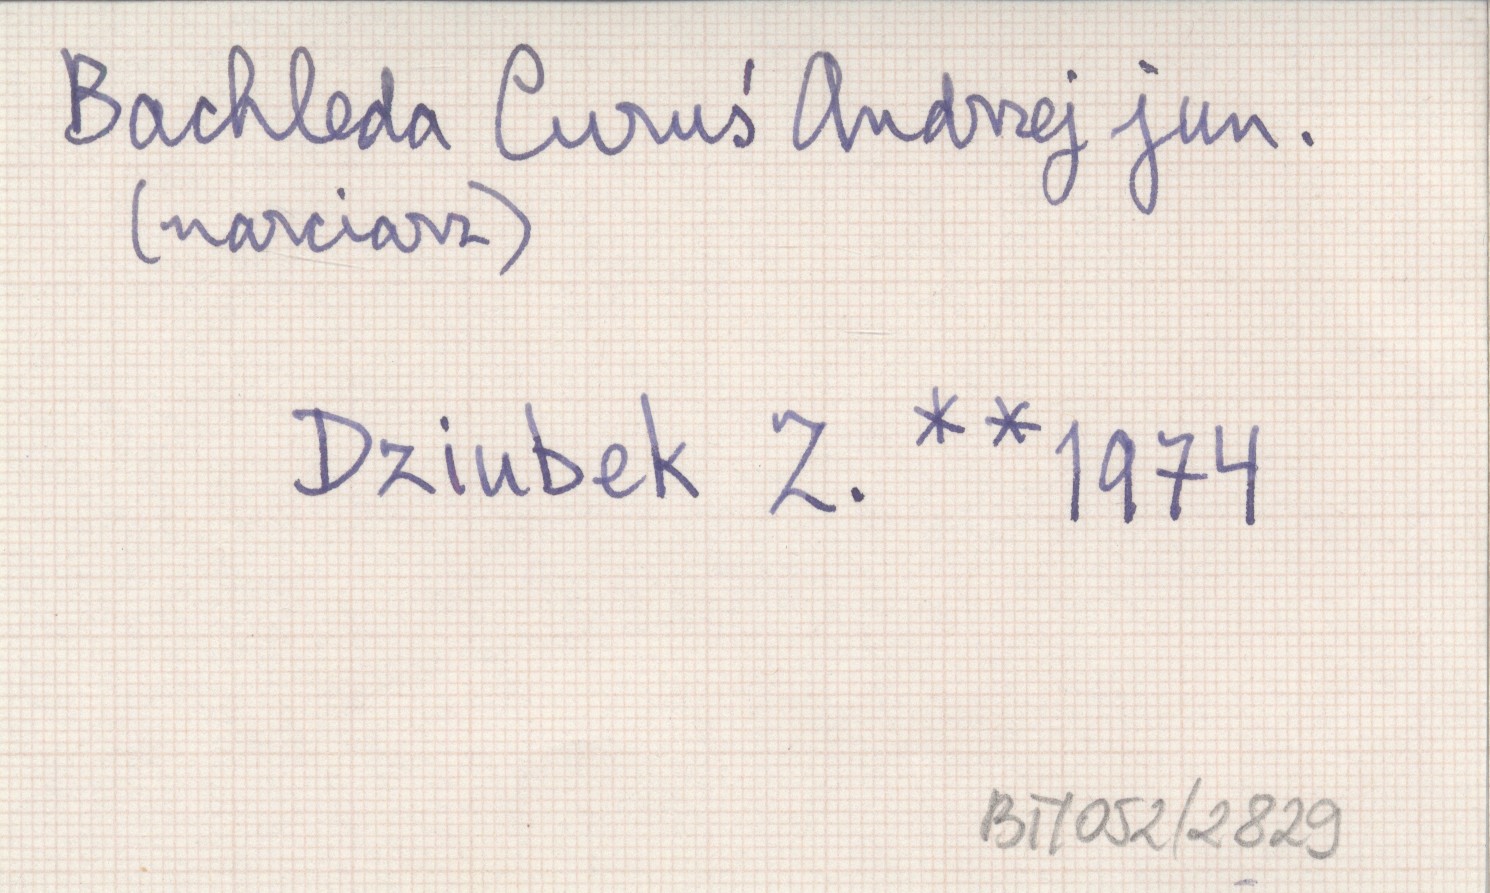 Bachleda Curuś Andrzej jun.
(narciarz)
Dziubek Z. **1974
BT/052/2829